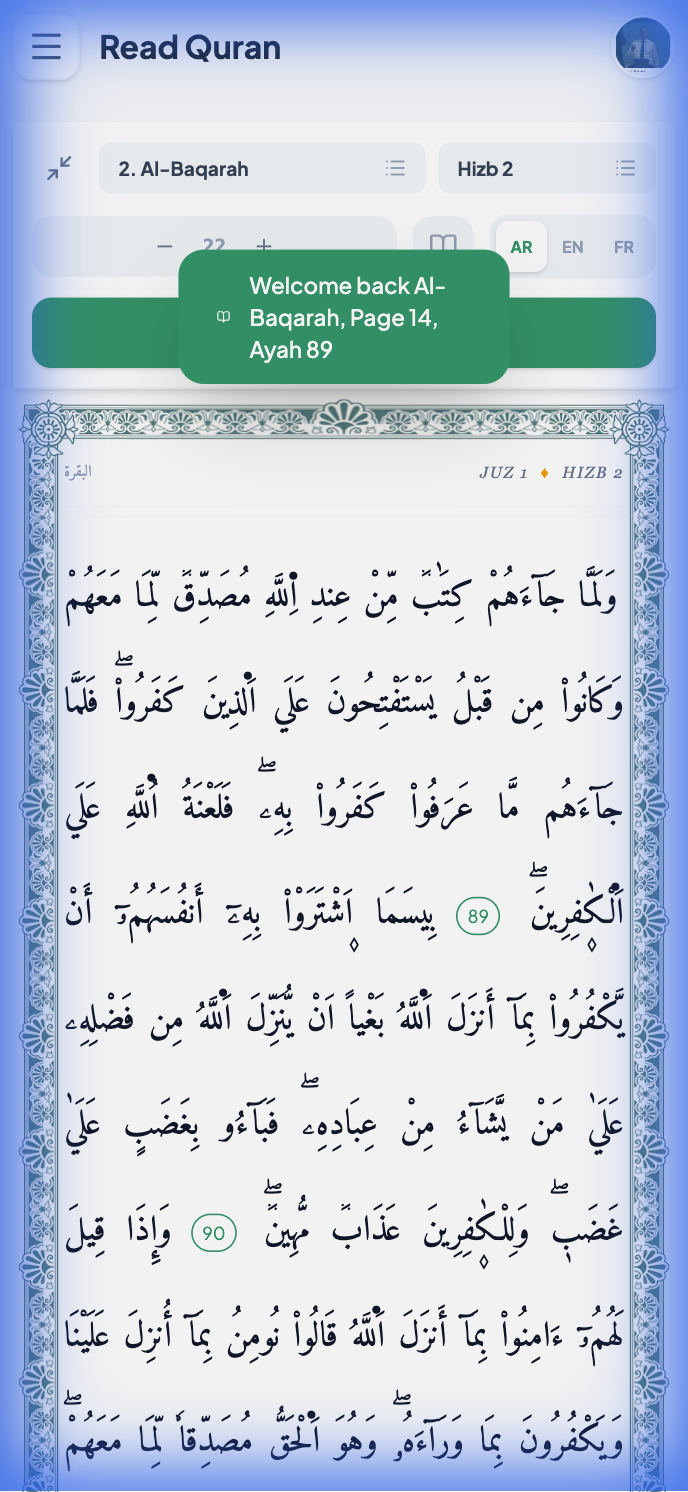 Read Quran
2. Al-Baqarah
Hizb 2
− 22 +
AR EN FR
Welcome back Al-
Baqarah, Page 14,
Ayah 89
البقرة
JUZ 1 ♦ HIZB 2
وَلَمَّا جَآءَهُمْ كِتَٰبٞ مِّنْ عِندِ اِ۬للَّهِ مُصَدِّقٞ لِّمَا مَعَهُمْ
وَكَانُواْ مِن قَبْلُ يَسْتَفْتِحُونَ عَلَي اَ۬لذِينَ كَفَرُواْۖ فَلَمَّا
جَآءَهُم مَّا عَرَفُواْ كَفَرُواْ بِهِۦۖ فَلَعْنَةُ اُ۬للَّهِ عَلَي
اَ۬لْكٰ۪فِرِينَۖ 89 بِيسَمَا اَ۪شْتَرَوْاْ بِهِۦٓ أَنفُسَهُمُۥٓ أَنْ
يَّكْفُرُواْ بِمَآ أَنزَلَ اَ۬للَّهُ بَغْياً اَنْ يُّنَزِّلَ اَ۬للَّهُ مِن فَضْلِهِۦ
عَلَيٰ مَنْ يَّشَآءُ مِنْ عِبَادِهِۦۖ فَبَآءُو بِغَضَبٍ عَلَيٰ
غَضَبٖۖ وَلِلْكٰ۪فِرِينَ عَذَابٞ مُّهِينٞۖ 90 وَإِذَا قِيلَ
لَهُمُۥٓ ءَامِنُواْ بِمَآ أَنزَلَ اَ۬للَّهُ قَالُواْ نُومِنُ بِمَآ أُنزِلَ عَلَيْنَا
وَيَكْفُرُونَ بِمَا وَرَآءَهُۥۖ وَهُوَ اَ۬لْحَقُّ مُصَدِّقاٗ لِّمَا مَعَهُمْۖ